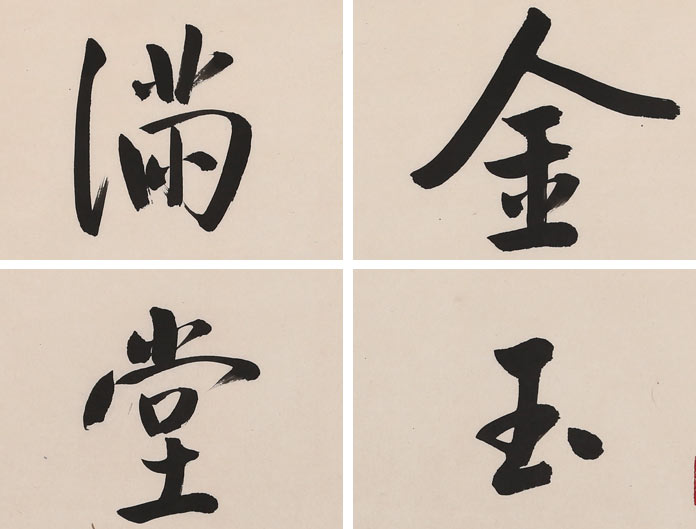 金玉
滿堂